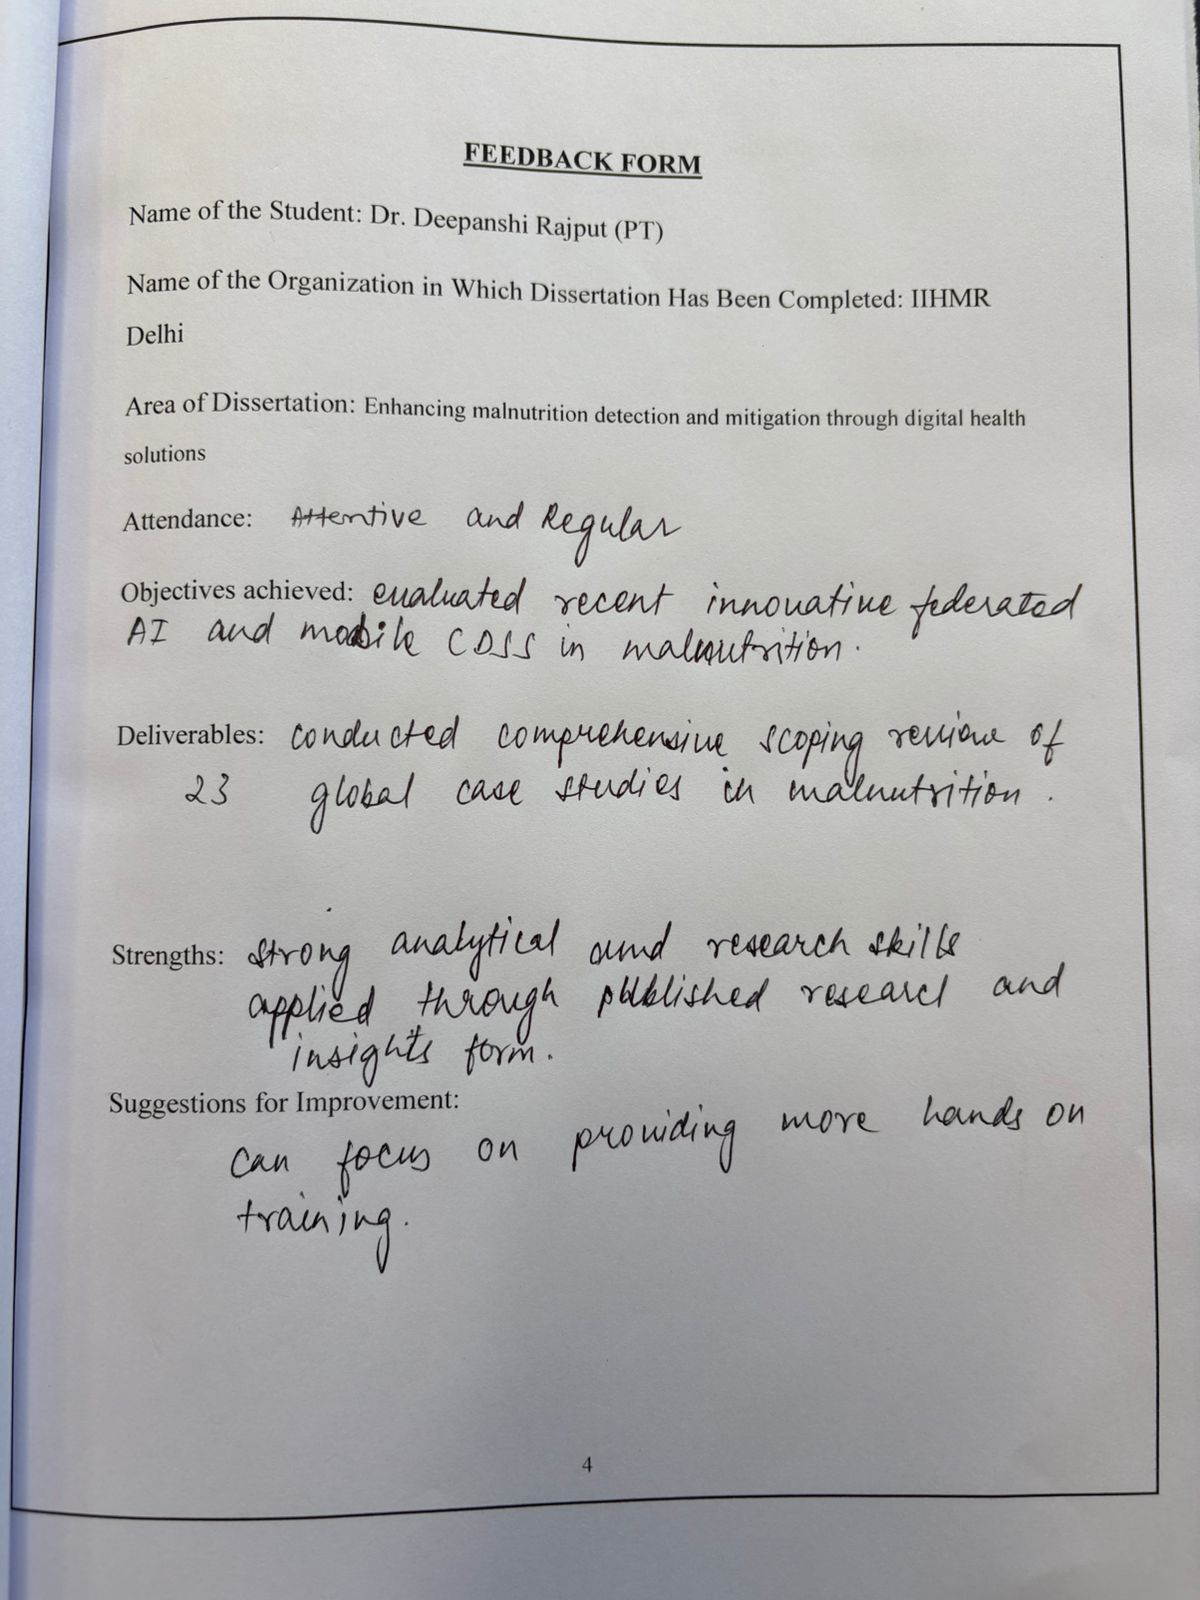 FEEDBACK FORM
Name of the Student: Dr. Deepanshi Rajput (PT)
Name of the Organization in Which Dissertation Has Been Completed: IIHMR
Delhi
Area of Dissertation: Enhancing malnutrition detection and mitigation through digital health
solutions
Attendance: Attentive and Regular
Objectives achieved: evaluated recent innovative federated
AI and mobile CDSS in malnutrition.
Deliverables: conducted comprehensive scoping review of
23 global case studies in malnutrition.
Strengths: strong analytical and research skills
applied through published research and
insights form.
Suggestions for Improvement:
can focus on providing more hands on
training.
4